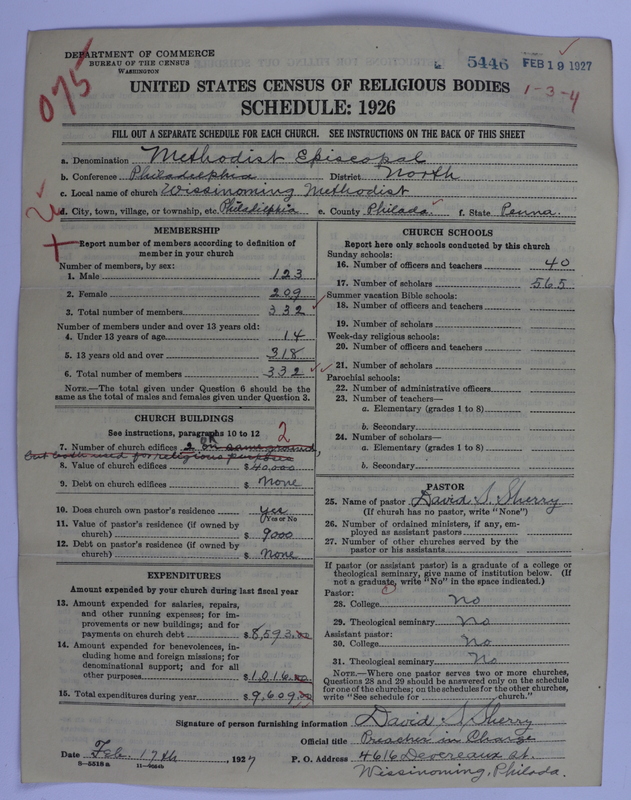 DEPARTMENT OF COMMERCE
BUREAU OF THE CENSUS
WASHINGTON
5446 FEB 19 1927
075
1-3-4
UNITED STATES CENSUS OF RELIGIOUS BODIES
SCHEDULE: 1926
FILL OUT A SEPARATE SCHEDULE FOR EACH CHURCH. SEE INSTRUCTIONS ON THE BACK OF THIS SHEET
a. Denomination Methodist Episcopal
b. Conference Philadelphia District North
c. Local name of church Wissinoming Methodist
d. City, town, village, or township, etc. Philadelphia e. County Philada. f. State Penna.
MEMBERSHIP
Report number of members according to definition of
member in your church
Number of members, by sex:
1. Male 123
2. Female 209
3. Total number of members 332
Number of members under and over 13 years old:
4. Under 13 years of age 14
5. 13 years old and over 318
6. Total number of members 332
NOTE.—The total given under Question 6 should be the
same as the total of males and females given under Question 3.
CHURCH BUILDINGS
See instructions, paragraphs 10 to 12
2
7. Number of church edifices 2 on same ground,
but both used for religious purposes
8. Value of church edifices $40,000
9. Debt on church edifices $ None
10. Does church own pastor's residence? yes
Yes or No
11. Value of pastor's residence (if owned by
church) $ 9000
12. Debt on pastor's residence (if owned by
church) $ None
EXPENDITURES
Amount expended by your church during last fiscal year
13. Amount expended for salaries, repairs,
and other running expenses; for im-
provements or new buildings; and for
payments on church debt $8,593.00
14. Amount expended for benevolences, in-
cluding home and foreign missions; for
denominational support; and for all
other purposes $1,016.00
15. Total expenditures during year $9,609.00
CHURCH SCHOOLS
Report here only schools conducted by this church
Sunday schools:
16. Number of officers and teachers 40
17. Number of scholars 565
Summer vacation Bible schools:
18. Number of officers and teachers
19. Number of scholars
Week-day religious schools:
20. Number of officers and teachers
21. Number of scholars
Parochial schools:
22. Number of administrative officers
23. Number of teachers—
a. Elementary (grades 1 to 8)
b. Secondary
24. Number of scholars—
a. Elementary (grades 1 to 8)
b. Secondary
PASTOR
25. Name of pastor David S. Sherry
(If church has no pastor, write "None")
26. Number of ordained ministers, if any, em-
ployed as assistant pastors
27. Number of other churches served by the
pastor or his assistants
If pastor (or assistant pastor) is a graduate of a college or
theological seminary, give name of institution below. (If
not a graduate, write "No" in the space indicated.)
Pastor:
28. College No
29. Theological seminary No
Assistant pastor:
30. College No
31. Theological seminary No
NOTE.—Where one pastor serves two or more churches,
Questions 28 and 29 should be answered only on the schedule
for one of the churches; on the schedules for the other churches,
write "See schedule for church."
Signature of person furnishing information David S. Sherry
Official title Preacher in Charge
Date Feb. 17th, 1927 P. O. Address 4616 Devereaux st.
8—5518 a
Wissinoming, Philada.